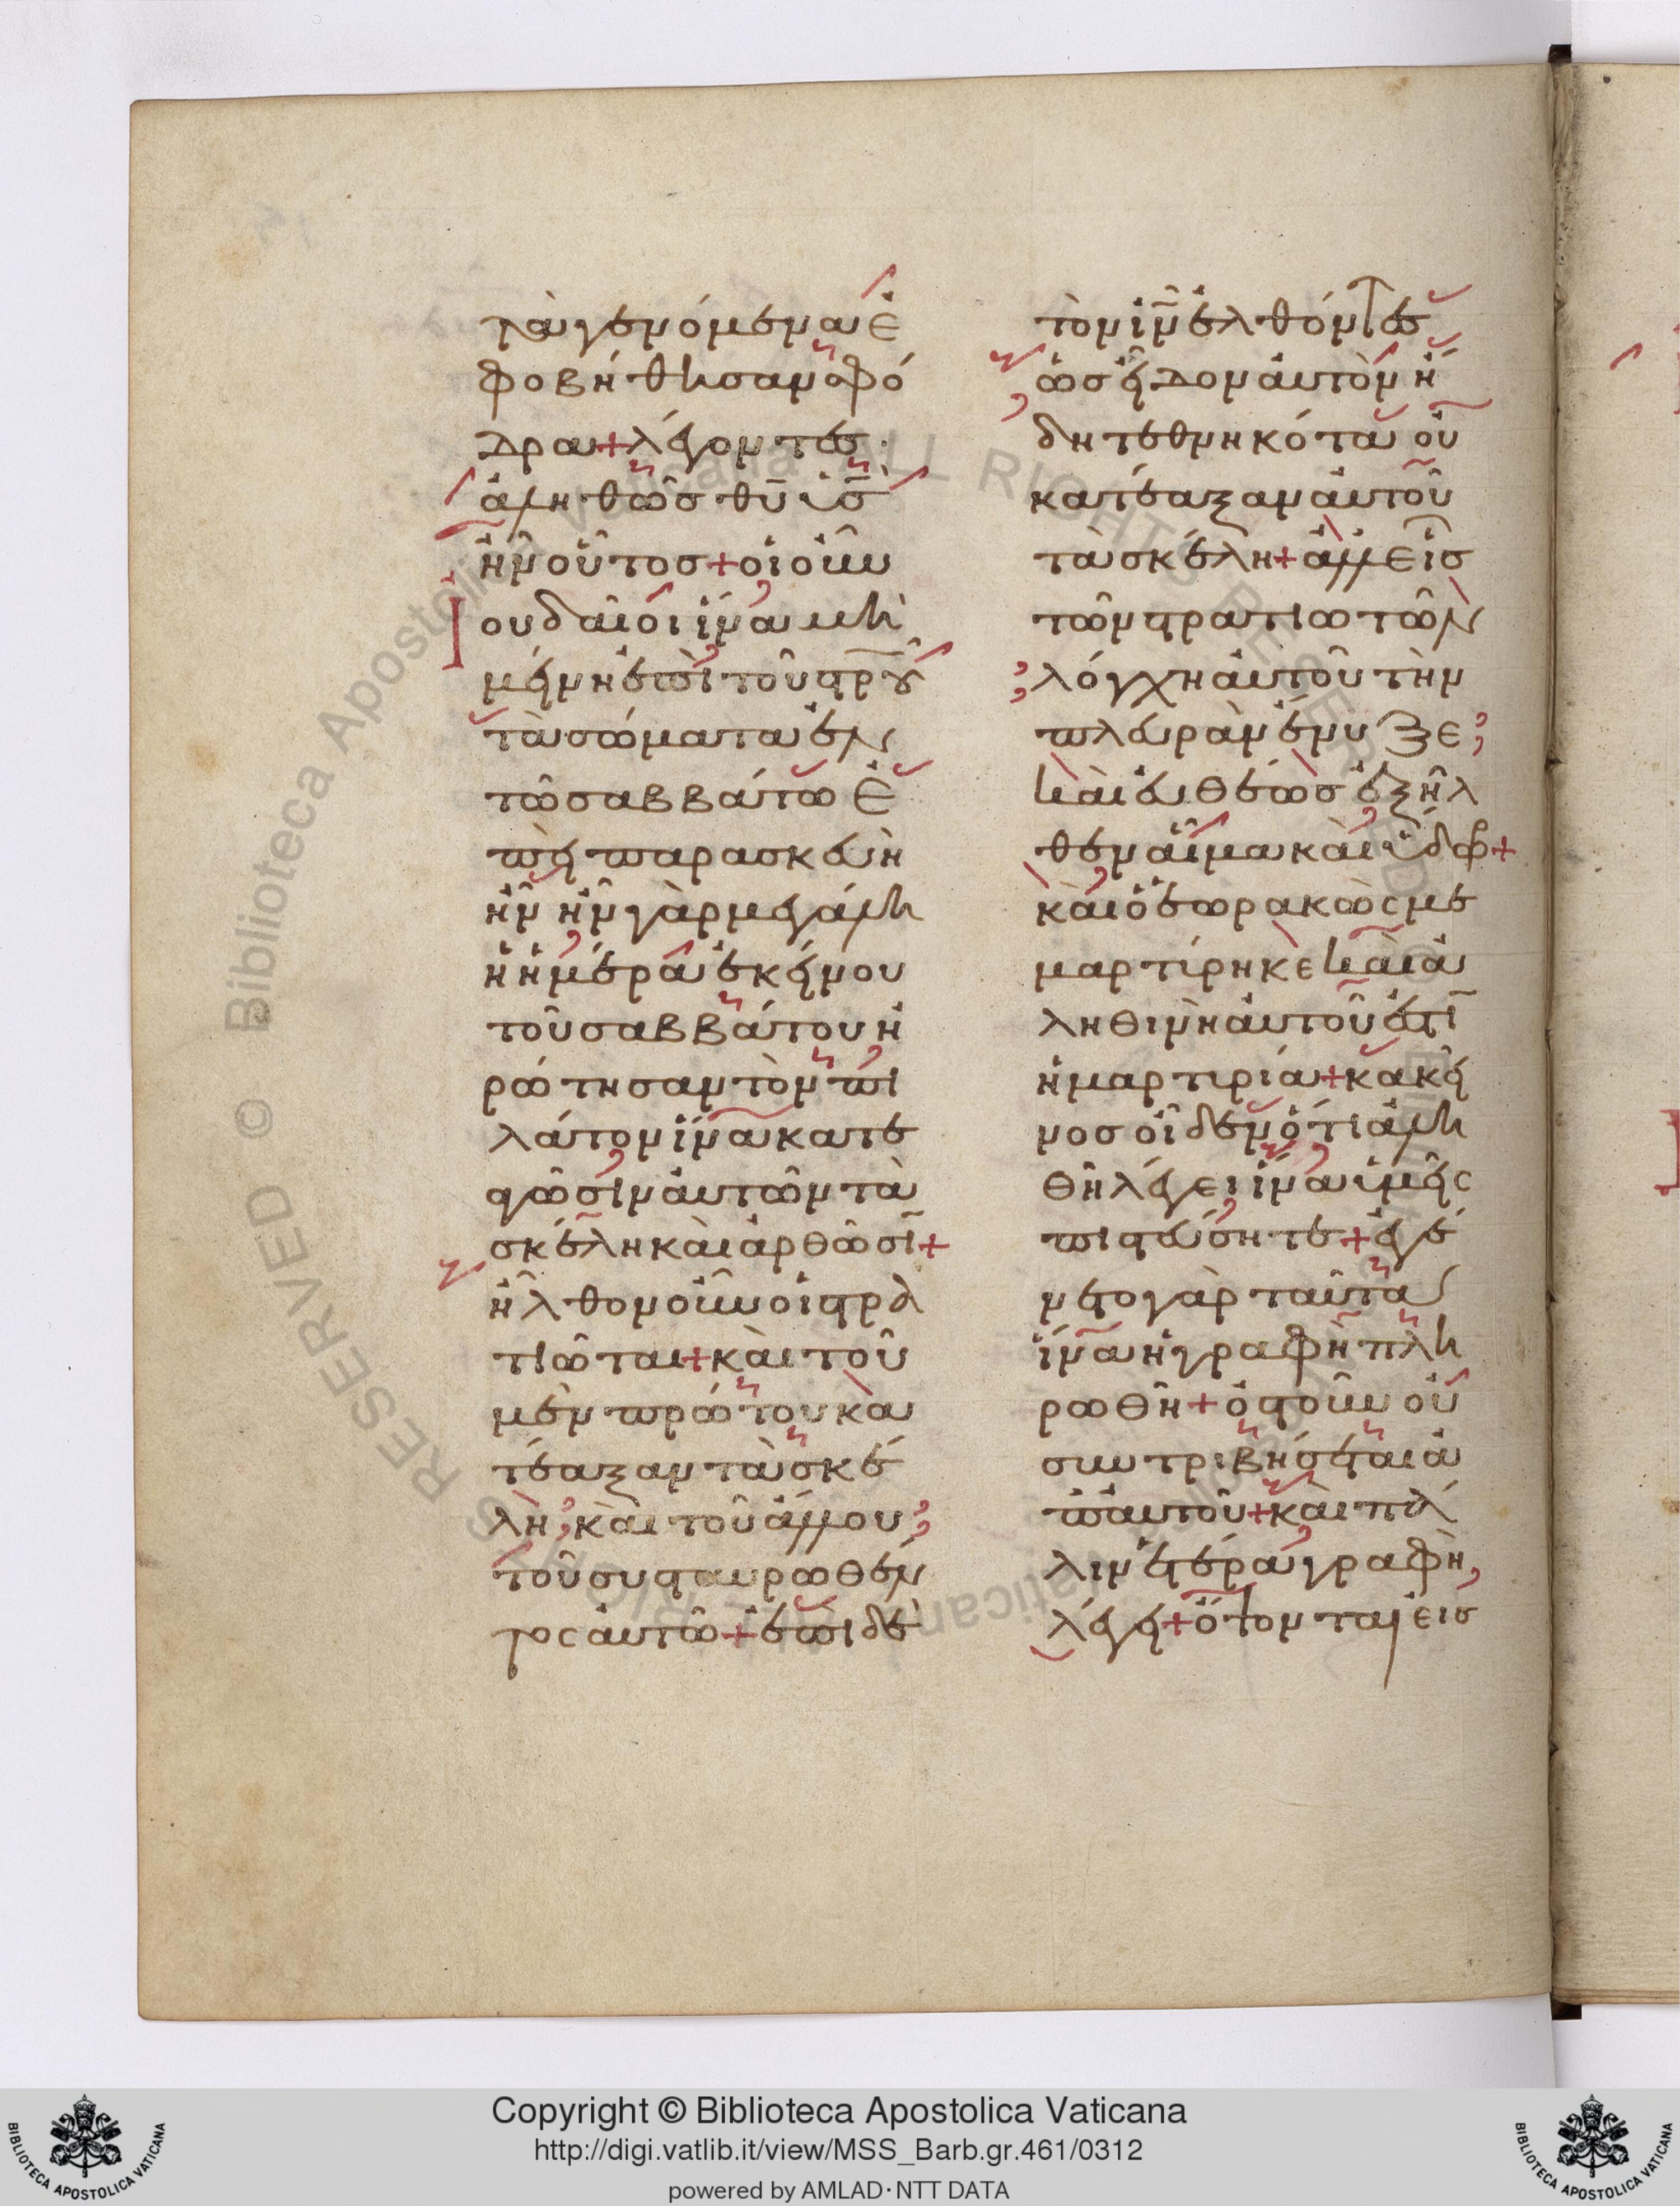 τὰ γενόμενα ἐ
φοβήθησαν σφό
δρα + λέγοντες·
ἀληθῶς θ̅υ̅ υἱὸς
ἦν οὗτος + οἱ οὖν
ἰουδαῖοι ἵνα μὴ
μένη ἐπὶ τοῦ σ̅ρ̅ου
τὰ σώματα ἐν
τῶ σαββάτω ἐ
πεὶ παρασκευὴ
ἦν ἦν γὰρ μεγάλη
ἡ ἡμέρα ἐκείνου
τοῦ σαββάτου ἠ
ρώτησαν τὸν πι
λάτον ἵνα κατε
αγῶσιν αὐτῶν τὰ
σκέλη καὶ ἀρθῶσι +
ἦλθον οὖν οἱ στρα
τιῶται + καὶ τοῦ
μὲν πρώτου κα
τέαξαν τὰ σκέ
λη, καὶ τοῦ ἄλλου,
τοῦ συσταυρωθέν
τος αὐτῶ + ἐπὶ δὲ
τὸν ι̅ν̅ ἐλθόντες
ὡς εἶδον αὐτὸν ἤ
δη τεθνηκότα οὐ
κατέαξαν αὐτοῦ
τὰ σκέλη + ἀλλ εἷς
τῶν στρατιωτῶν
λόγχη αὐτοῦ τὴν
πλευρὰν ἔνυξε,
καὶ εὐθέως ἐξῆλ
θεν αἷμα καὶ ὕδωρ +
καὶ ὁ ἑωρακὼς με
μαρτίρηκε καὶ ἀ
ληθινὴ αὐτοῦ ἐστὶν
ἡ μαρτιρία + κακεῖ
νος οἶδεν ὅτι ἀλη
θῆ λέγει ἵνα ἱμεῖς
πιστεύσητε + ἐγέ
νετο γὰρ ταῦτα
ἵνα ἡ γραφὴ πλη
ρωθῆ + ὀστοῦν οὐ
συντριβήσεται ἀ
π αὐτοῦ + καὶ πά
λιν ἑτέρα γραφὴ,
λέγει + ὄψονται εἰς
Copyright © Biblioteca Apostolica Vaticana
http://digi.vatlib.it/view/MSS_Barb.gr.461/0312
powered by AMLAD·NTT DATA